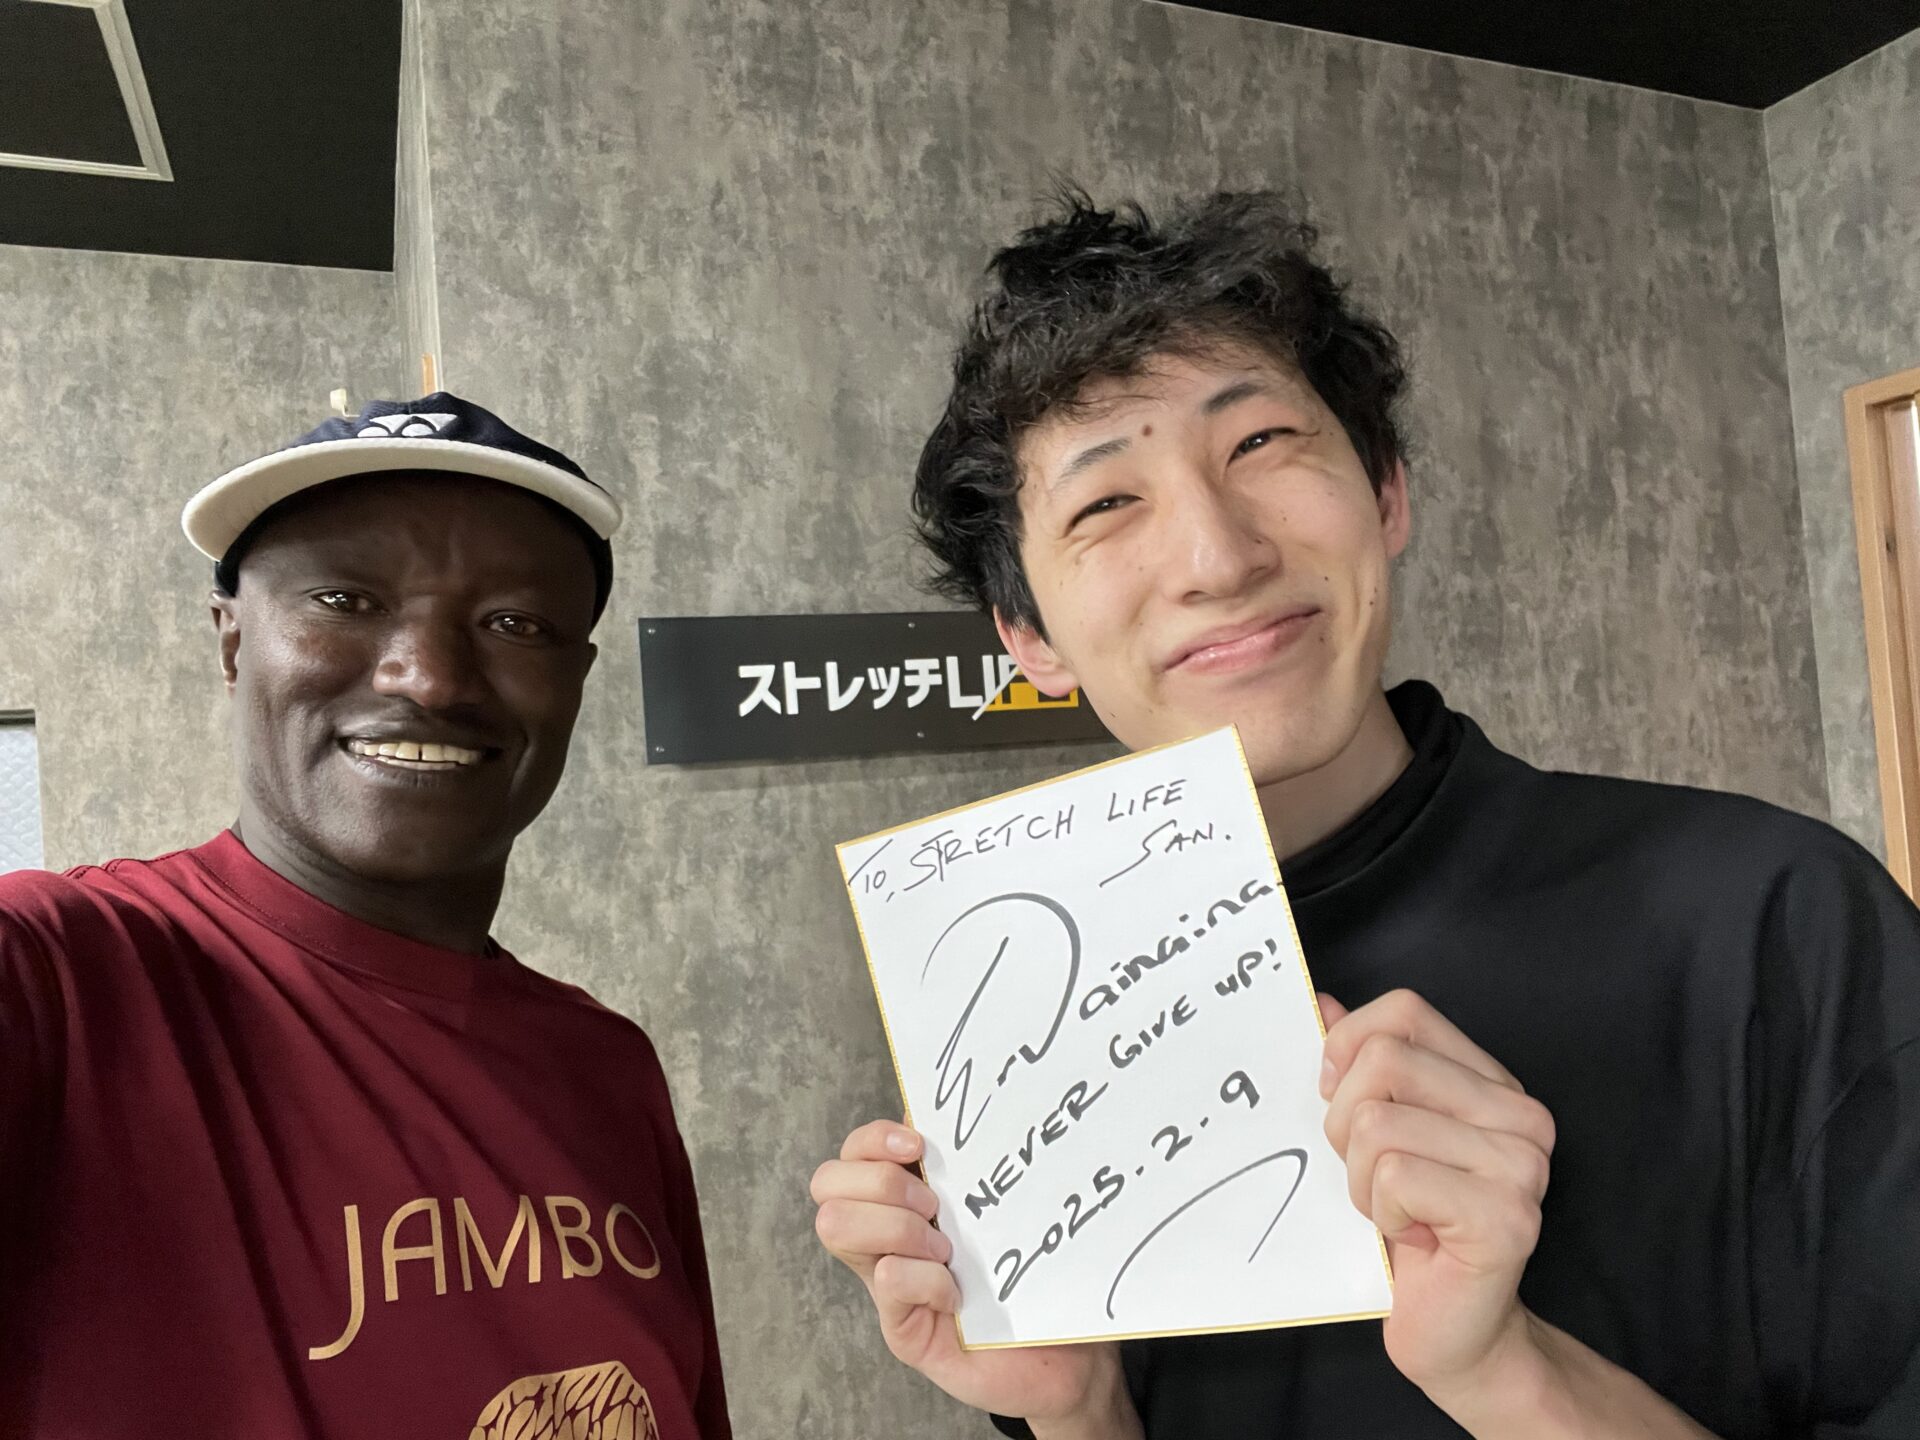 ストレッチLIFE
TO, STRETCH LIFE
SAN.
Er. Dainaina.
NEVER GIVE UP!
2025.2.9
JAMBO